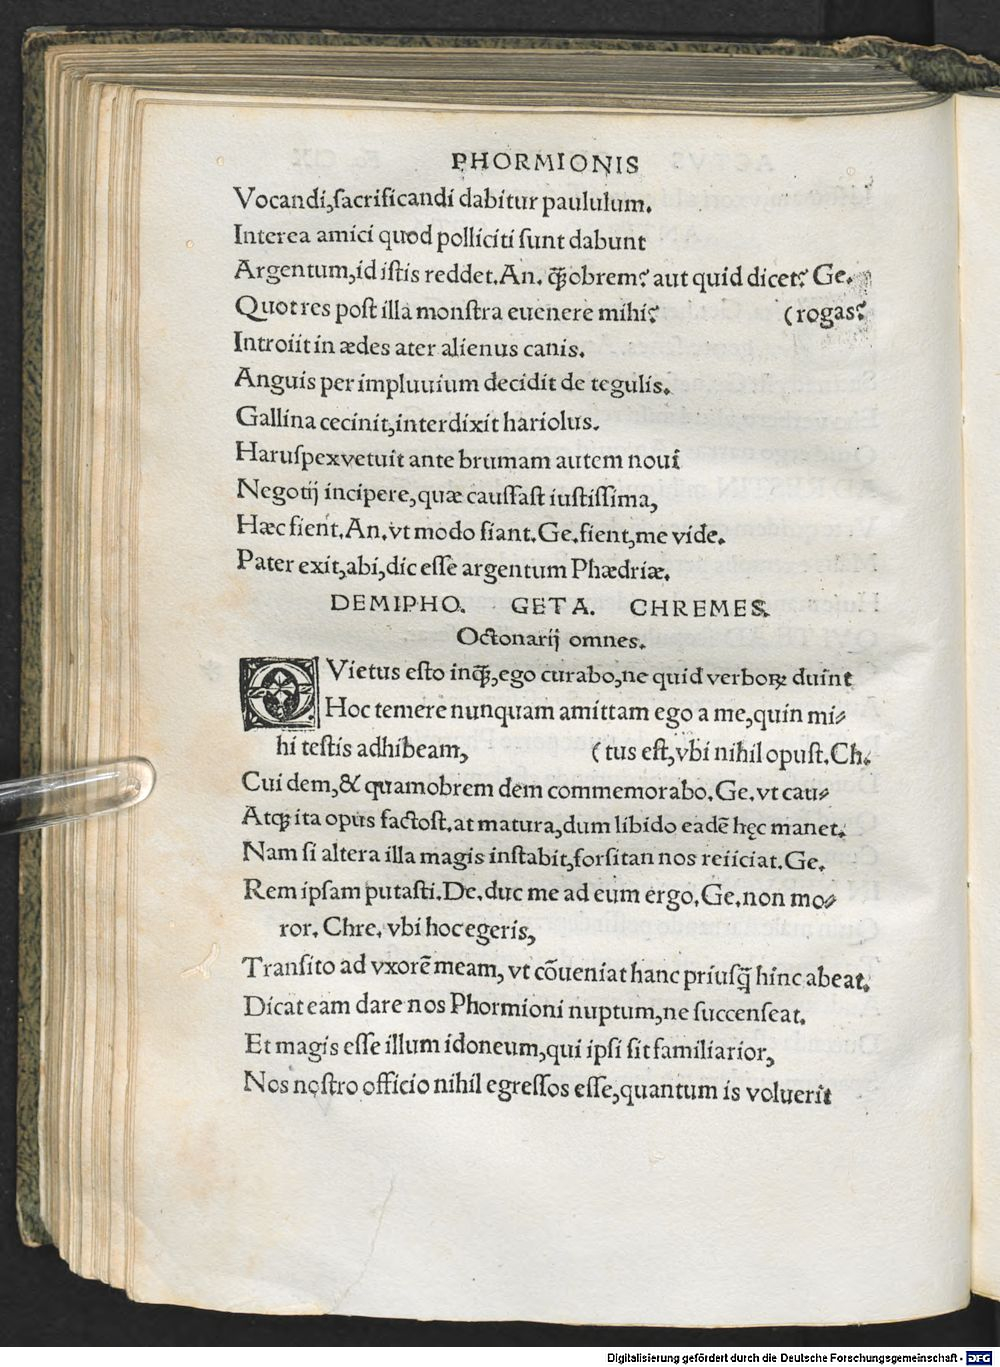 PHORMIONIS
Vocandi,ſacrificandi dabitur paululum.
Interea amici quod polliciti ſunt dabunt
Argentum,id iſtis reddet.An. ꝙ̃obrem? aut quid dicet? Ge.
Quot res poſt illa monſtra euenere mihi? (rogas?
Introiit in ædes ater alienus canis.
Anguis per impluuium decidit de tegulis.
Gallina cecinit,interdixit hariolus.
Haruſpex vetuit ante brumam autem noui
Negotij incipere,quæ cauſſaſt iuſtiſſima,
Hæc fient.An.vt modo fiant.Ge.fient,me vide.
Pater exit,abi,dic eſſe argentum Phædriæ.
DEMIPHO. GETA. CHREMES.
Octonarij omnes.
QVietus eſto inꝙ̃,ego curabo,ne quid verboꝝ duint
Hoc temere nunquam amittam ego a me,quin mi⸗
hi teſtis adhibeam, (tus eſt,vbi nihil opuſt.Ch.
Cui dem,& quamobrem dem commemorabo.Ge.vt cau⸗
Atqꝫ ita opus factoſt.at matura,dum libido eadē hęc manet.
Nam ſi altera illa magis inſtabit,forſitan nos reiiciat.Ge.
Rem ipſam putaſti.De.duc me ad eum ergo.Ge.non mo⸗
ror. Chre. vbi hoc egeris,
Tranſito ad vxorē meam, vt cōueniat hanc priuſq̃ hinc abeat.
Dicat eam dare nos Phormioni nuptum,ne ſuccenſeat.
Et magis eſſe illum idoneum,qui ipſi ſit familiarior,
Nos noſtro officio nihil egreſſos eſſe,quantum is voluerit
Digitalisierung gefördert durch die Deutsche Forschungsgemeinschaft - DFG